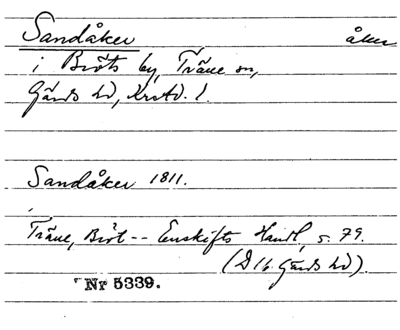 Sandåker åker
i Bröts by, Träne sn,
Gärds hd, Krstd. l.
Sandåker 1811.
Träne, Bröt -- Enskifts Handl, s. 79.
(D 16. Gärds hd).
Nr 5339.